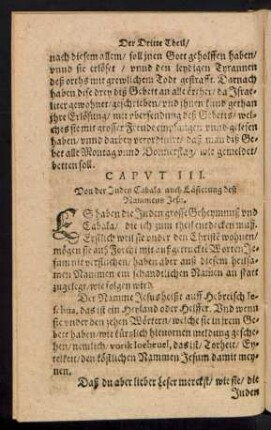 Der Dritte Theil/
nach diesem allem/ soll jnen Gott geholffen haben/
vnnd sie erlöset / vnnd den leydigen Tyrannen
deß orths mit grewlichem Todt gestrafft. Darnach
haben dise drey diß Gebett an alle örther/ da Israe-
liter gewohnet/ geschriben/ vnd jhnen kund gethan
jhre Erlösung/ mit vbersendung deß Gebetts/ wel-
ches sie mit grosser Freude empfangen vnnd gelesen
haben/ vnnd darbey verordnet/ daß man diß Ge-
bet alle Montag vnnd Donnerstag/ wie gemeldet/
betten soll.
CAPVT III.
Von der Juden Cabala/ auch Lästerung deß
Nammens Jesu.
ES haben die Juden grosse Geheymnuß vnd
Cabala/ die ich zum theil entdecken muß.
Erstlich weil sie vnder den Christē wohnen/
mögen sie auß Forcht mit außgetruckte Worten Je-
sum nit verspotten/ haben aber auß diesem heilsa-
men Nammen ein schandtlichen Namen an statt
zugelegt/ wie folgen wird.
Der Namme Jesus heißt auff Hebreisch Ie-
schua, das ist ein Heyland oder Helffer. Vnd wenn
sie vnder den zehen Wörtern/ welche sie in jrem Ge-
bett haben/ wie kürtzlich hievornen meldung gesche-
hen/ nemlich/ varik das ist/ Torheit/ Ey-
telkeit/ den köstlichen Nammen Jesum damit mey-
nen.
Daß du aber lieber Leser merckst/ wie sie/ die
Juden